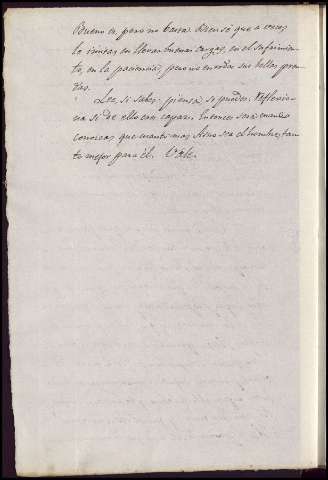 Bueno es, pero no basta. Bien sé que a veces
le imitas en llevar buenas cargas, en el sufrimien-
to, en la paciencia, pero no en todas sus bellas pren-
das.
Lee, si sabes: piensa, si puedes: reflexio-
na si de ello eres capaz. Entonces será cuando
conozcas que cuanto mas Asno sea el hombre, tan-
to mejor para él. Vale.